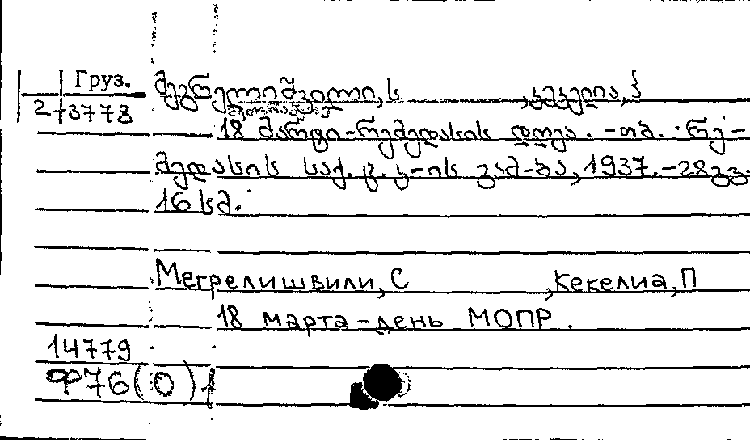 Груз.
2-73773
მეგრელიშვილი, ს ,კეკელია, პ
18 მარტი-რემედასის დღეა. -თბ. რე-
მედასის საქ. ც. კ-ის გამ-ბა, 1937.-28გვ.
16 სმ.
Мегрелишвили, С ,Кекелиа, П
18 марта-день МОПР.
14779
Ф76(0)1